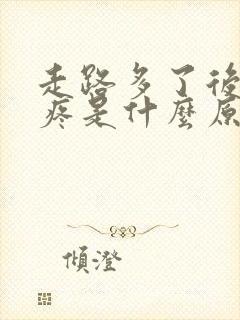 走路多了後
疼是什麼原
傾澄